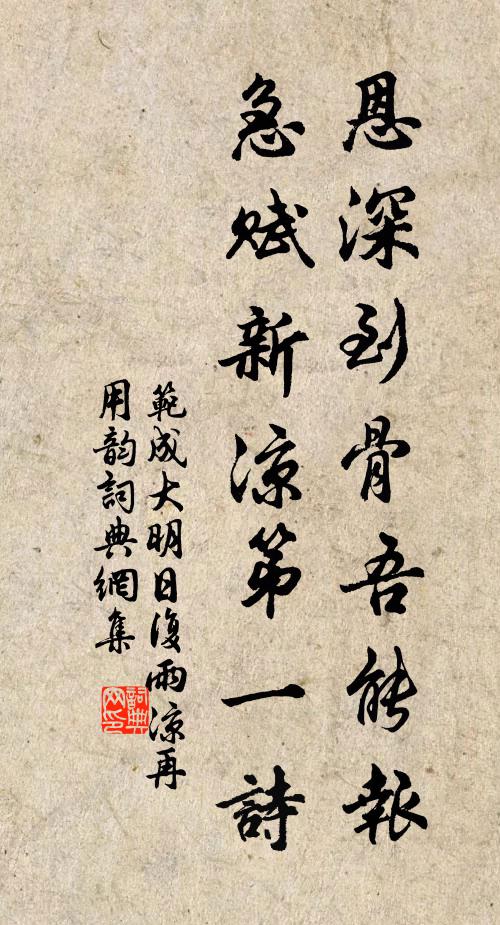 恩深到骨吾能報
急賦新涼第一詩
範成大明日復雨凉再
用韵詞典網集
詞典
网印